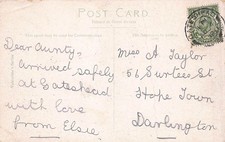 POST CARD
Dear Aunty,
arrived safely
at Gateshead
with love
from Elsie
Miss A Taylor
66 Surtees St
Hope Town
Darlington